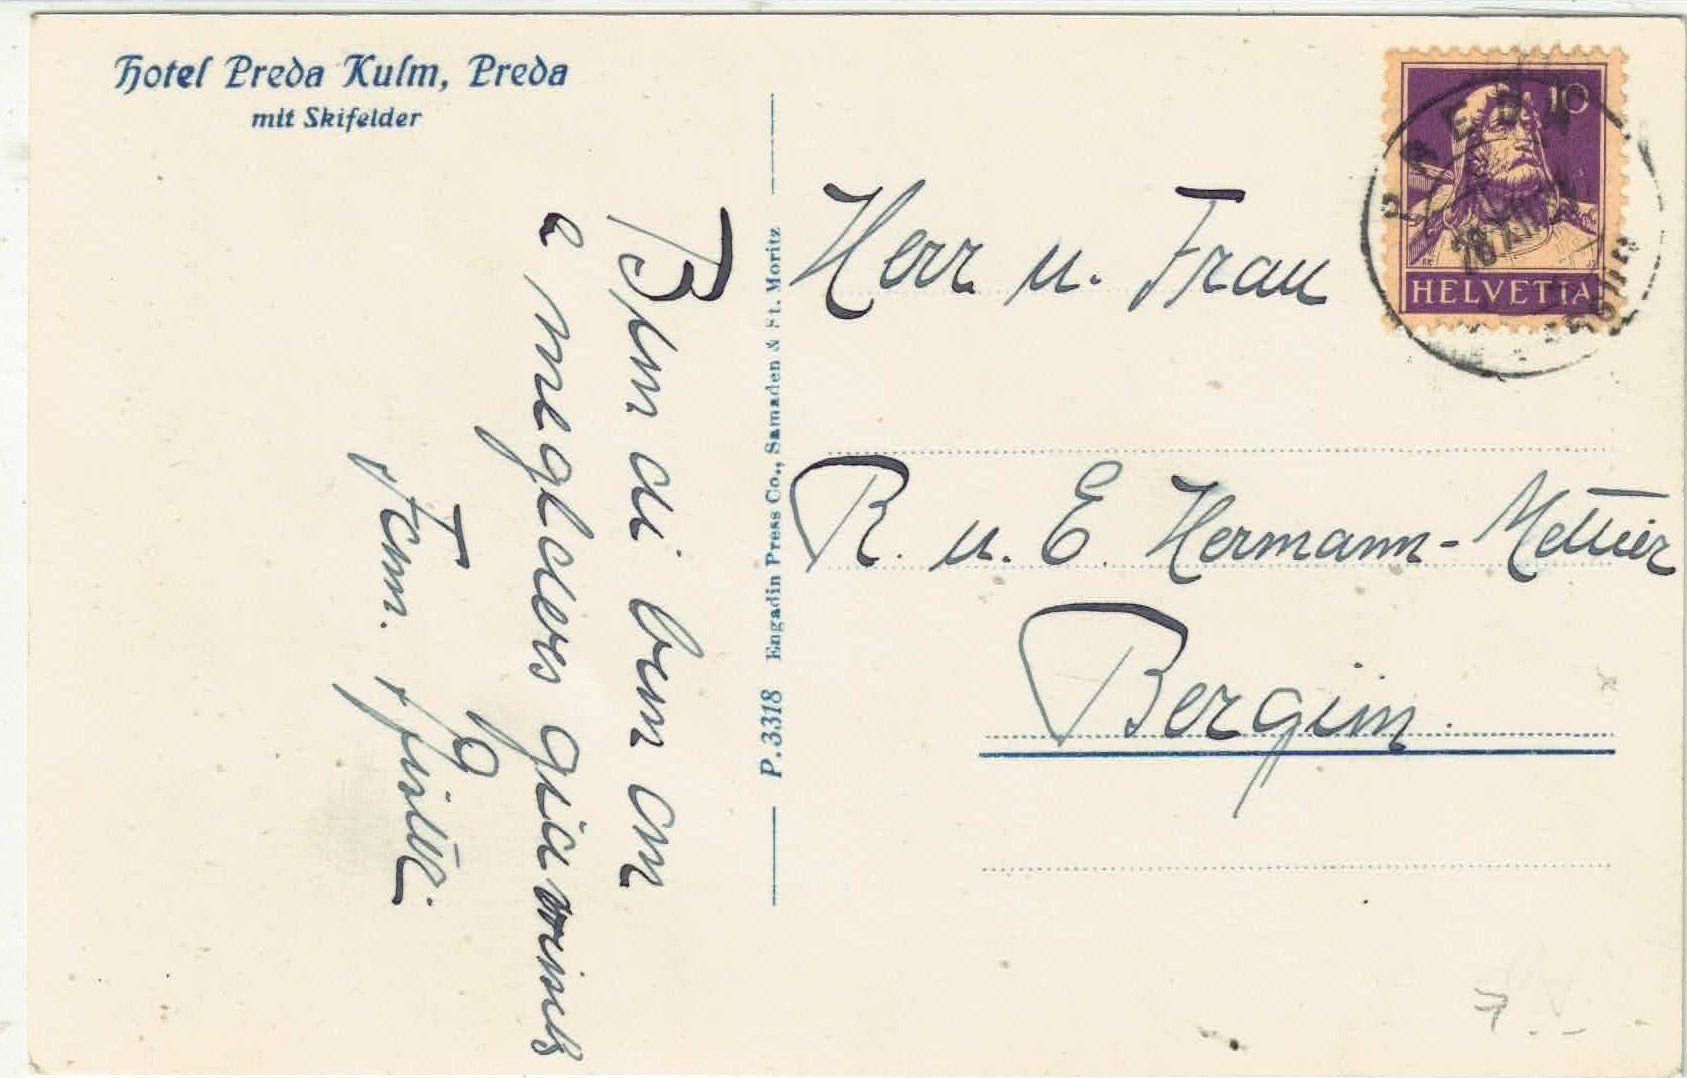 Hotel Preda Kulm, Preda
mit Skifelder
Bun di bun an
e meglders giavüschs
Fam.
P. 3318 Engadin Press Co., Samaden & St. Moritz
10
HELVETIA
PREDA
Herr u. Frau
R. u. E. Hermann-Mettier
Bergün.